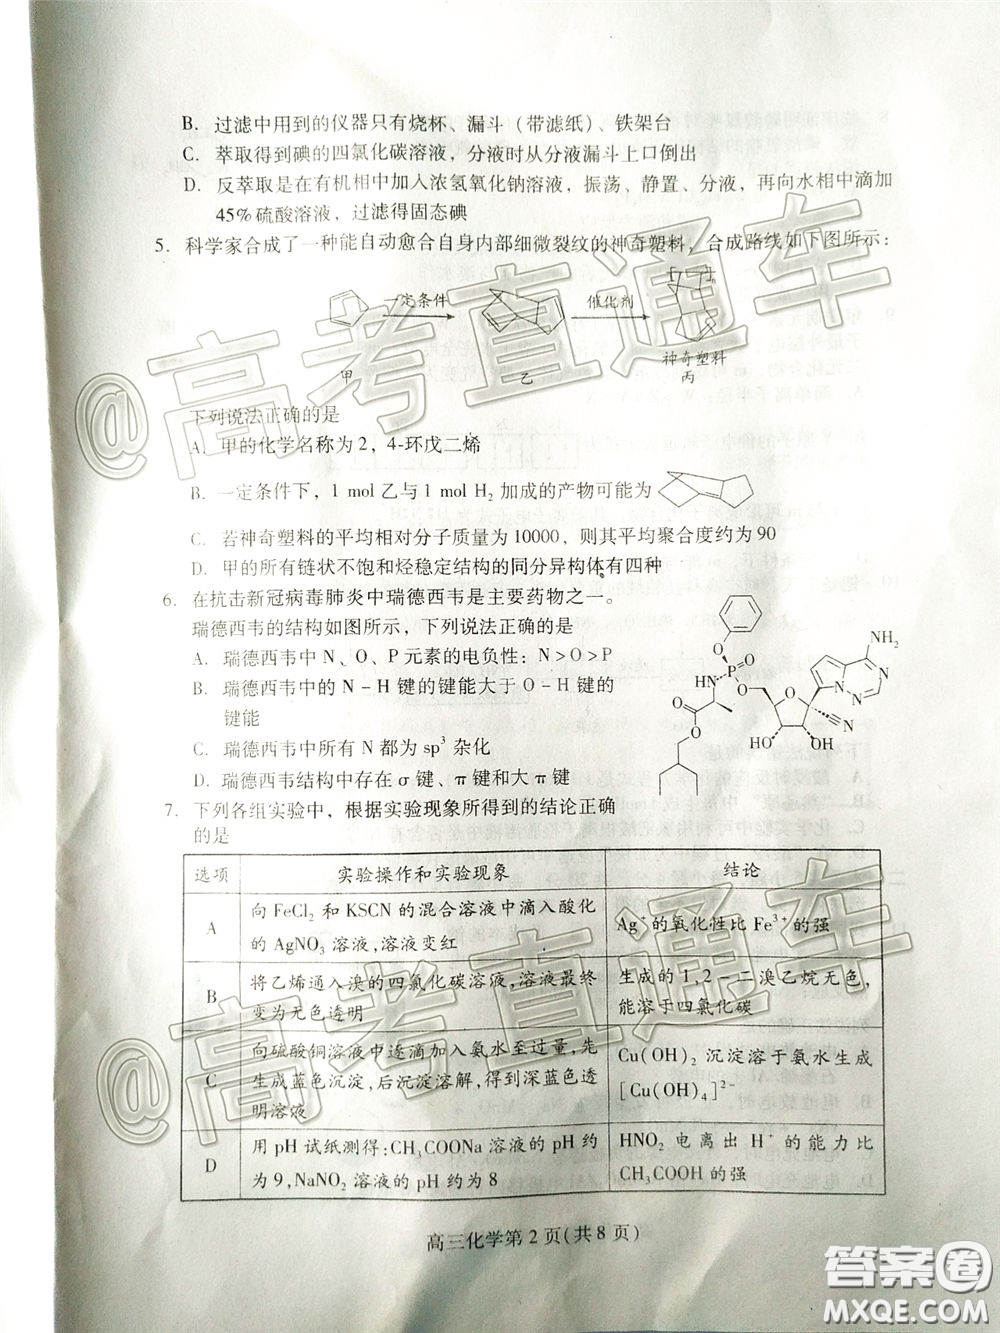 B. 过滤中用到的仪器只有烧杯、漏斗（带滤纸）、铁架台
C. 萃取得到碘的四氯化碳溶液，分液时从分液漏斗上口倒出
D. 反萃取是在有机相中加入浓氢氧化钠溶液，振荡、静置、分液，再向水相中滴加
45%硫酸溶液，过滤得固态碘
5. 科学家合成了一种能自动愈合自身内部细微裂纹的神奇塑料，合成路线如下图所示：
一定条件 催化剂
神奇塑料
甲 乙 丙
下列说法正确的是
A. 甲的化学名称为2，4-环戊二烯
B. 一定条件下，1 mol乙与1 mol H2 加成的产物可能为
C. 若神奇塑料的平均相对分子质量为10000，则其平均聚合度约为90
D. 甲的所有链状不饱和烃稳定结构的同分异构体有四种
6. 在抗击新冠病毒肺炎中瑞德西韦是主要药物之一。
瑞德西韦的结构如图所示，下列说法正确的是
A. 瑞德西韦中N、O、P元素的电负性：N>O>P
B. 瑞德西韦中的N-H键的键能大于O-H键的
键能
C. 瑞德西韦中所有N都为sp3杂化
D. 瑞德西韦结构中存在σ键、π键和大π键
O P O HN O O O O HO OH N NH2 N N N
7. 下列各组实验中，根据实验现象所得到的结论正确
的是
选项 实验操作和实验现象 结论
A 向FeCl2和KSCN的混合溶液中滴入酸化
的AgNO3溶液,溶液变红 Ag+的氧化性比Fe3+的强
B 将乙烯通入溴的四氯化碳溶液,溶液最终
变为无色透明 生成的1,2-二溴乙烷无色,
能溶于四氯化碳
C 向硫酸铜溶液中逐滴加入氨水至过量,先
生成蓝色沉淀,后沉淀溶解,得到深蓝色透
明溶液 Cu(OH)2沉淀溶于氨水生成
[Cu(OH)4]2-
D 用pH试纸测得:CH3COONa溶液的pH约
为9,NaNO2溶液的pH约为8 HNO2电离出H+的能力比
CH3COOH的强
高三化学第2页(共8页)
@高考直通车
@高考直通车
答案圈
MXQE.COM